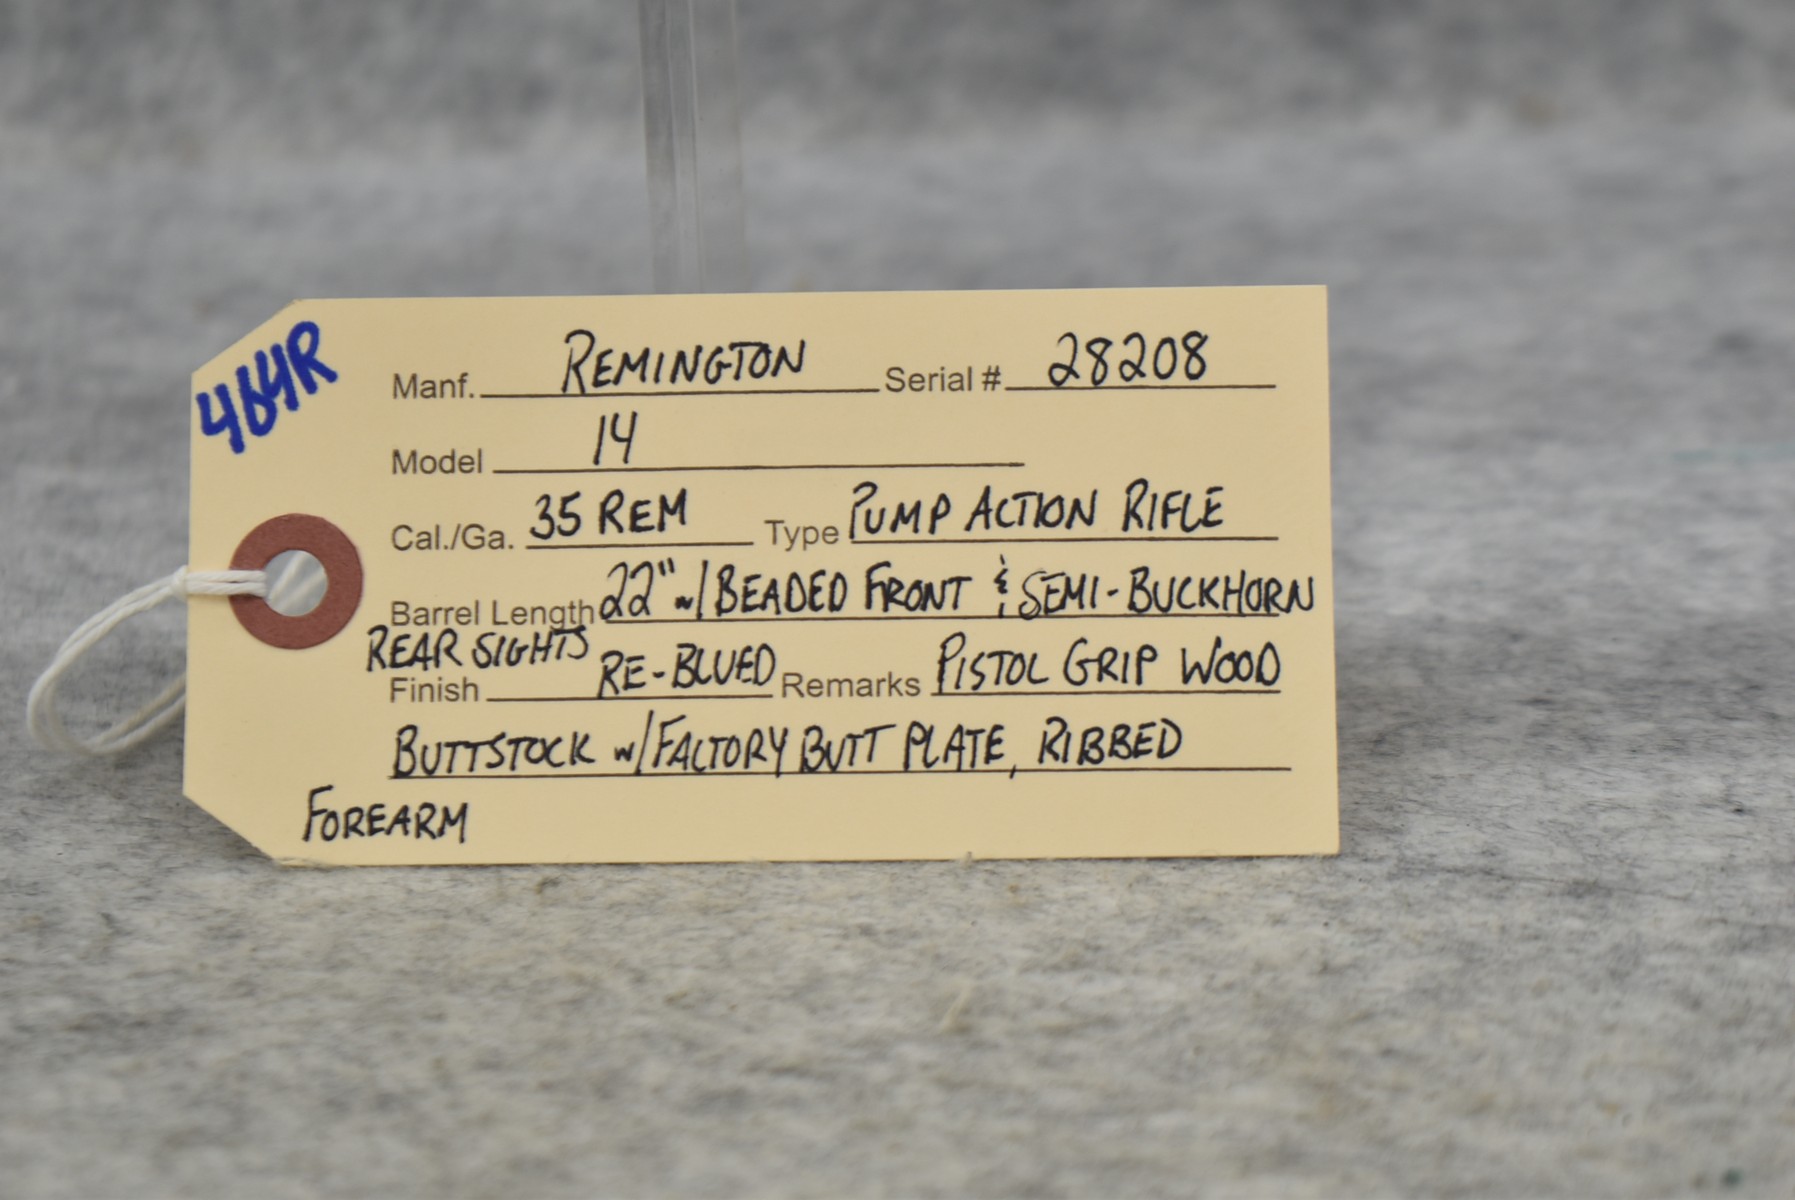 464R
Manf. REMINGTON Serial # 28208
Model 14
Cal./Ga. 35 REM Type PUMP ACTION RIFLE
Barrel Length 22" w/ BEADED FRONT & SEMI-BUCKHORN
REAR SIGHTS
Finish RE-BLUED Remarks PISTOL GRIP WOOD
BUTTSTOCK w/ FACTORY BUTT PLATE, RIBBED
FOREARM